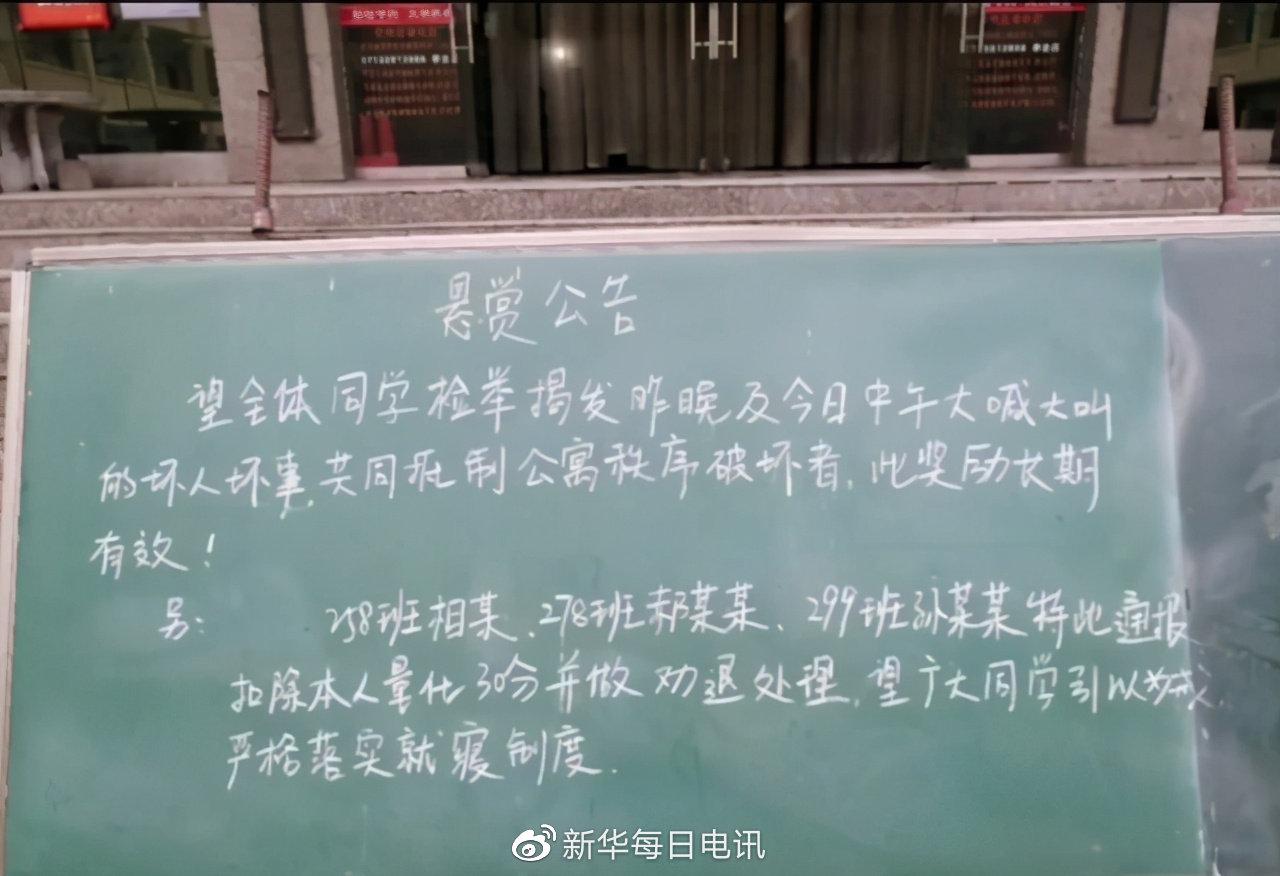 悬赏公告
望全体同学检举揭发昨晚及今日中午大喊大叫
的坏人坏事,共同抵制公寓秩序破坏者,此奖励长期
有效!
另: 258班相某、278班郝某某、299班孙某某特此通报
扣除本人量化30分并做劝退处理,望广大同学引以为戒,
严格落实就寝制度.
新华每日电讯